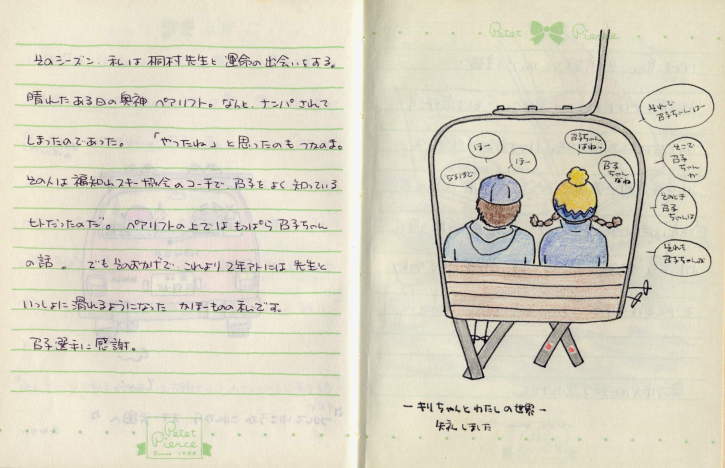 そのシーズン、私は桐村先生と運命の出会いをする。
晴れたある日の奥神ペアリフト。なんと、ナンパされて
しまったのであった。「やったね」と思ったのもつかのま。
その人は福知山スキー協会のコーチで、乃子をよく知っている
ヒトだったのだ。ペアリフトの上ではもっぱら乃子ちゃん
の話。でもそのおかげで、これより2年アトには先生と
いっしょに滑れるようになった かほーものの私です。
乃子選手に感謝。
Petet Pierce
Petet Pierce
ほー
ほー
なるほど
乃子ちゃんはねー
乃子ちゃんねー
それで乃子ちゃんはー
そこで乃子ちゃんが
そのとき乃子ちゃんは
それを乃子ちゃんが
ーキリちゃんとわたしの世界ー
失礼しました